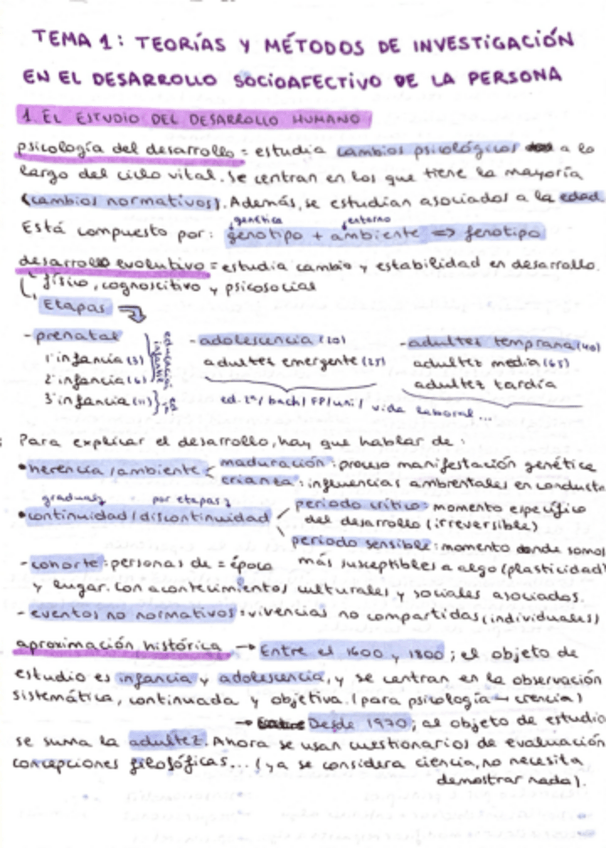 TEMA 1: TEORÍAS Y MÉTODOS DE INVESTIGACIÓN
EN EL DESARROLLO SOCIOAFECTIVO DE LA PERSONA
1. EL ESTUDIO DEL DESARROLLO HUMANO
psicología del desarrollo = estudia cambios psicológicos a lo
largo del ciclo vital. Se centran en los que tiene la mayoría
(cambios normativos). Además, se estudian asociados a la edad
genética entorno
Está compuesto por: genotipo + ambiente => fenotipo
desarrollo evolutivo = estudia cambio y estabilidad en desarrollo.
físico, cognoscitivo y psicosocial
Etapas
- prenatal
1ª infancia (3)
2ª infancia (6)
3ª infancia (11)
- adolescencia (20)
adultez emergente (25)
ed. 2ª / bach / FP / uni /
- adultez temprana (40)
adultez media (65)
adultez tardía
vida laboral...
Para explicar el desarrollo, hay que hablar de:
• herencia / ambiente < maduración: proceso manifestación genética
crianza: influencias ambientales en conducta
gradual por etapas
• continuidad / discontinuidad < periodo crítico: momento específico
del desarrollo (irreversible)
periodo sensible: momento donde somos
más susceptibles a algo (plasticidad)
- cohorte: personas de = época
y lugar. Con acontecimientos culturales y sociales asociados.
- eventos no normativos: vivencias no compartidas (individuales)
aproximación histórica → Entre el 1600 y 1800; el objeto de
estudio es infancia y adolescencia, y se centran en la observación
sistemática, continuada y objetiva. (para psicología → ciencia)
→ Desde 1970; al objeto de estudio
se suma la adultez. Ahora se usan cuestionarios de evaluación
concepciones filosóficas... (ya se considera ciencia, no necesita
demostrar nada).